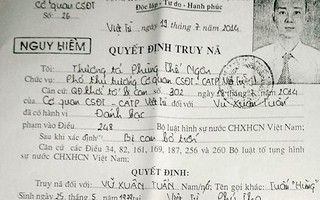 Cơ quan CSĐT
Số: 26
Độc lập - Tự do - Hạnh phúc
Việt trì, ngày 19 tháng 7 năm 2014
NGUY HIỂM
QUYẾT ĐỊNH TRUY NÃ
Tôi: Thượng tá Phùng Thế Ngân
Chức vụ: Phó thủ trưởng Cơ quan CSĐT - CATP Việt trì
Căn cứ QĐ khởi tố bị can số 302 2014
của Cơ quan CSĐT - CATP Việt trì đối với Vũ Xuân Tuấn
đã có hành vi Đánh bạc
phạm vào Điều 248 Bộ luật hình sự nước CHXHCN Việt Nam;
Sau khi xác định Bị can bỏ trốn
Căn cứ các Điều 34, 82, 161, 169, 187, 256 và 260 Bộ luật tố tụng hình
sự nước CHXHCN Việt Nam;
QUYẾT ĐỊNH:
Truy nã đối với: VŨ XUÂN TUẤN Nam/nữ; Tên gọi khác: Tuấn "Hùng"
Sinh ngày 25 tháng 5 năm tại Việt trì Phú Thọ